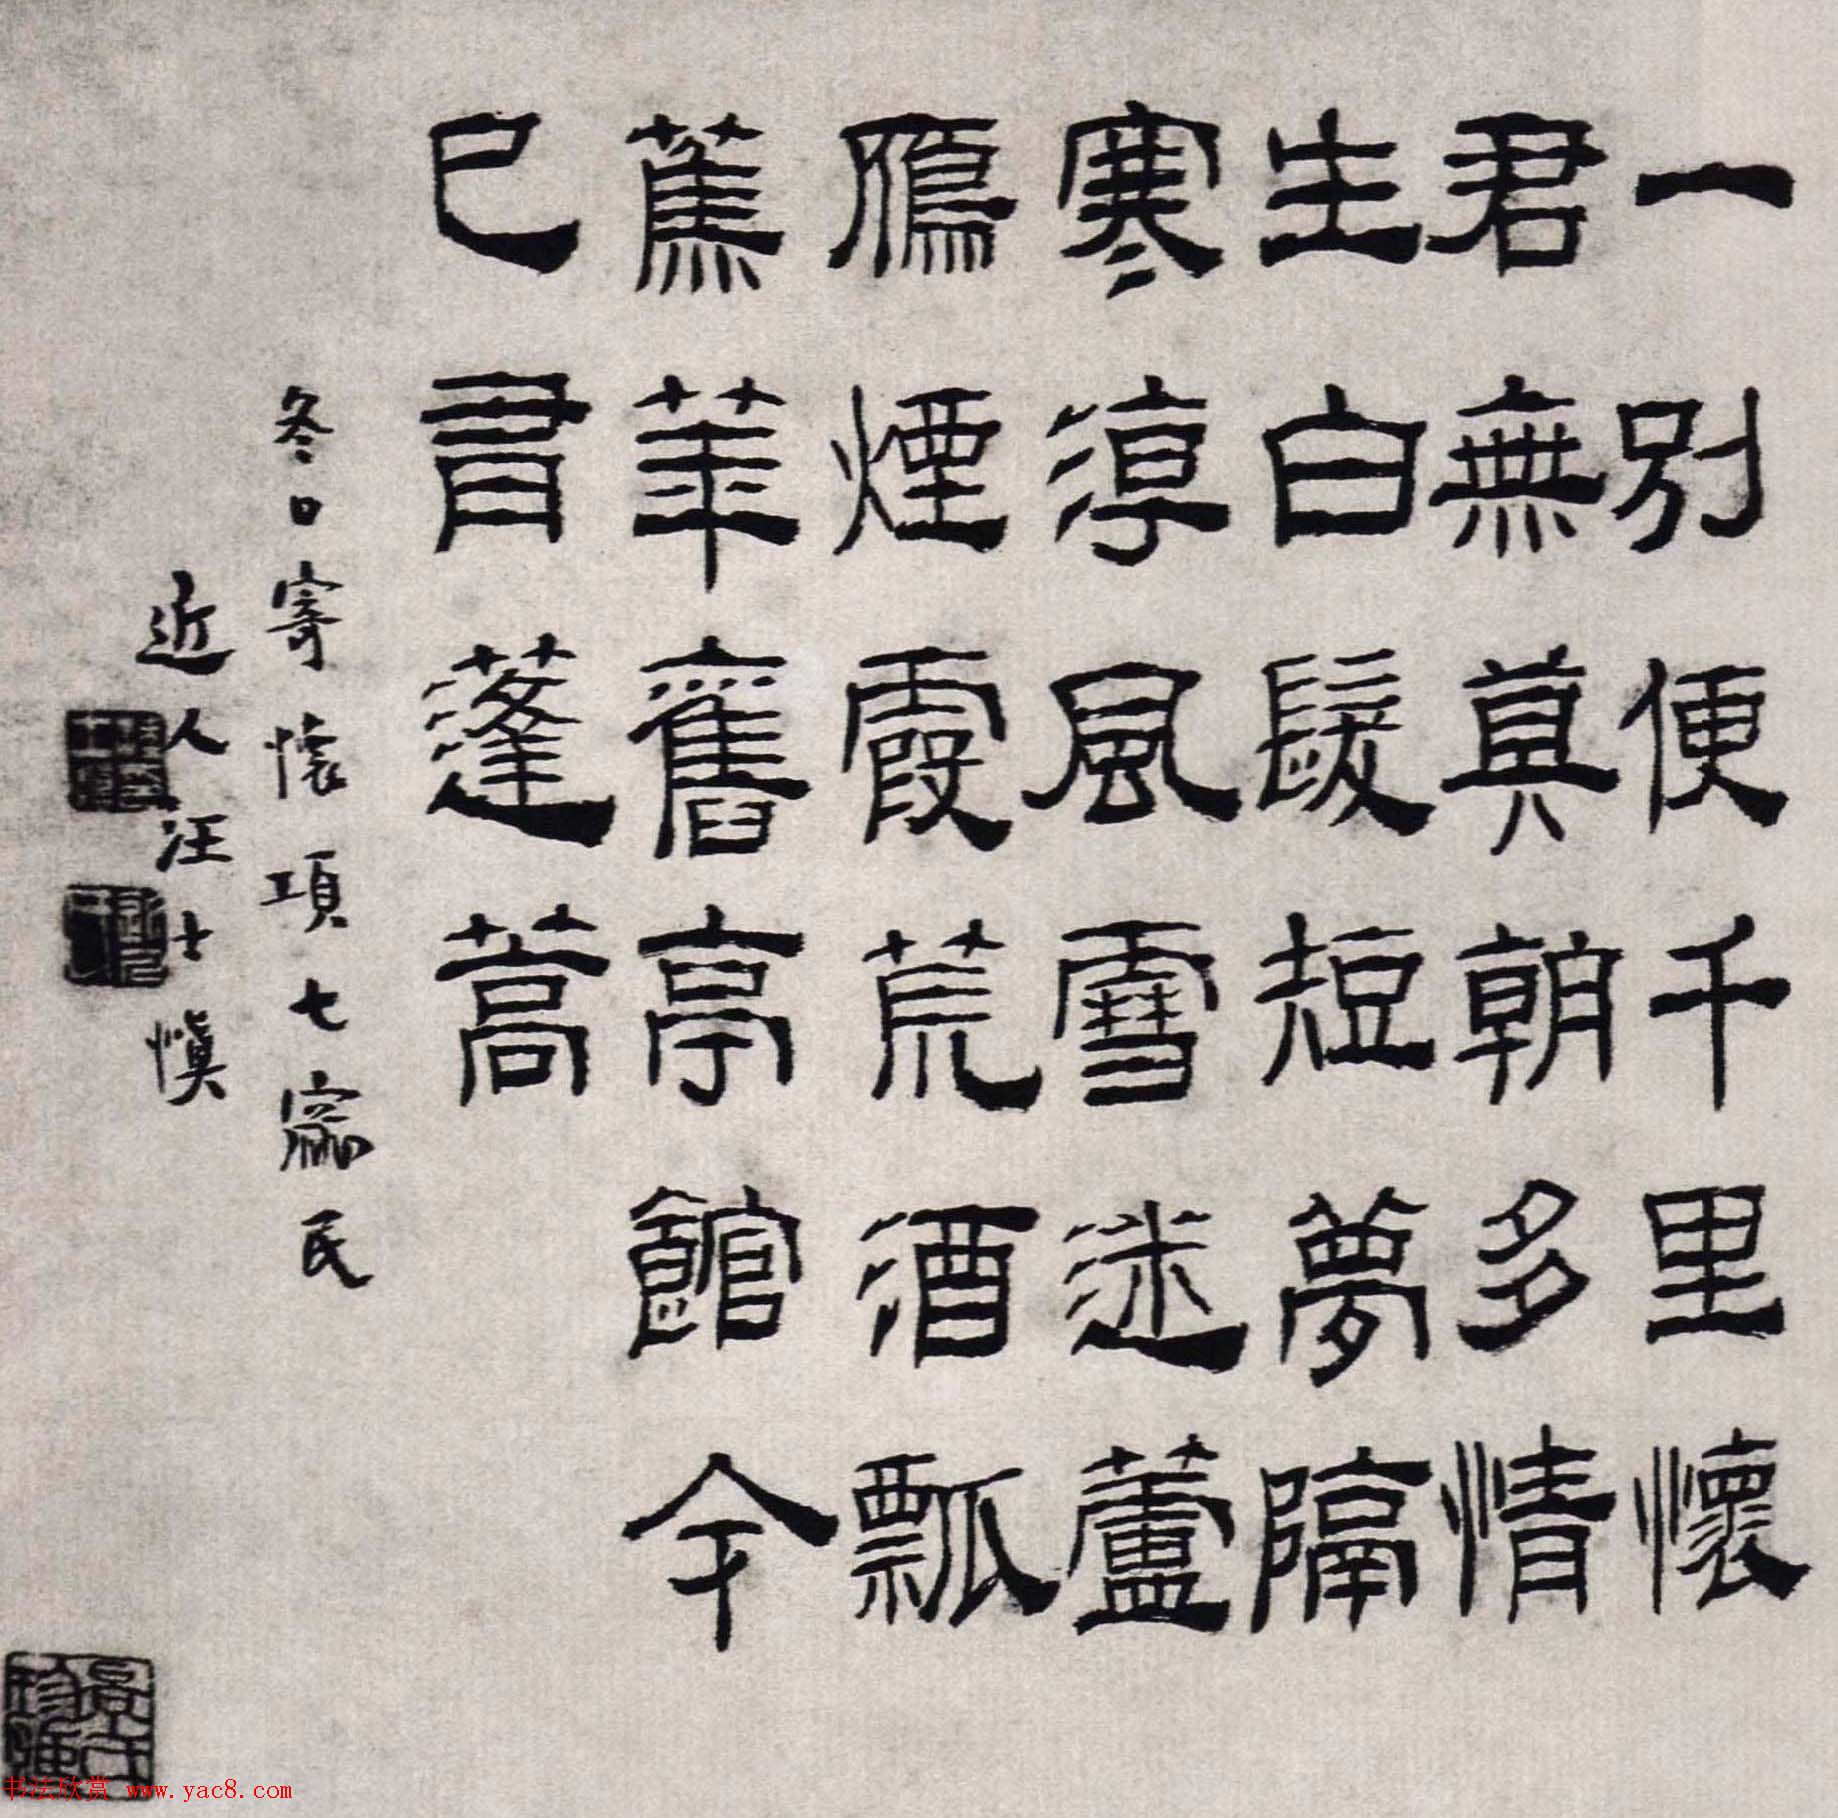 一別便千里懷
君無眞朝多情
生白髮短夢隔
寒渟風雪迷蘆
鴈煙霞荒酒瓢
蕉苹舊亭館今
已胃蓬蒿
冬日寄懷項七寓民
近人汪士慎
书法欣赏 www.yac8.com